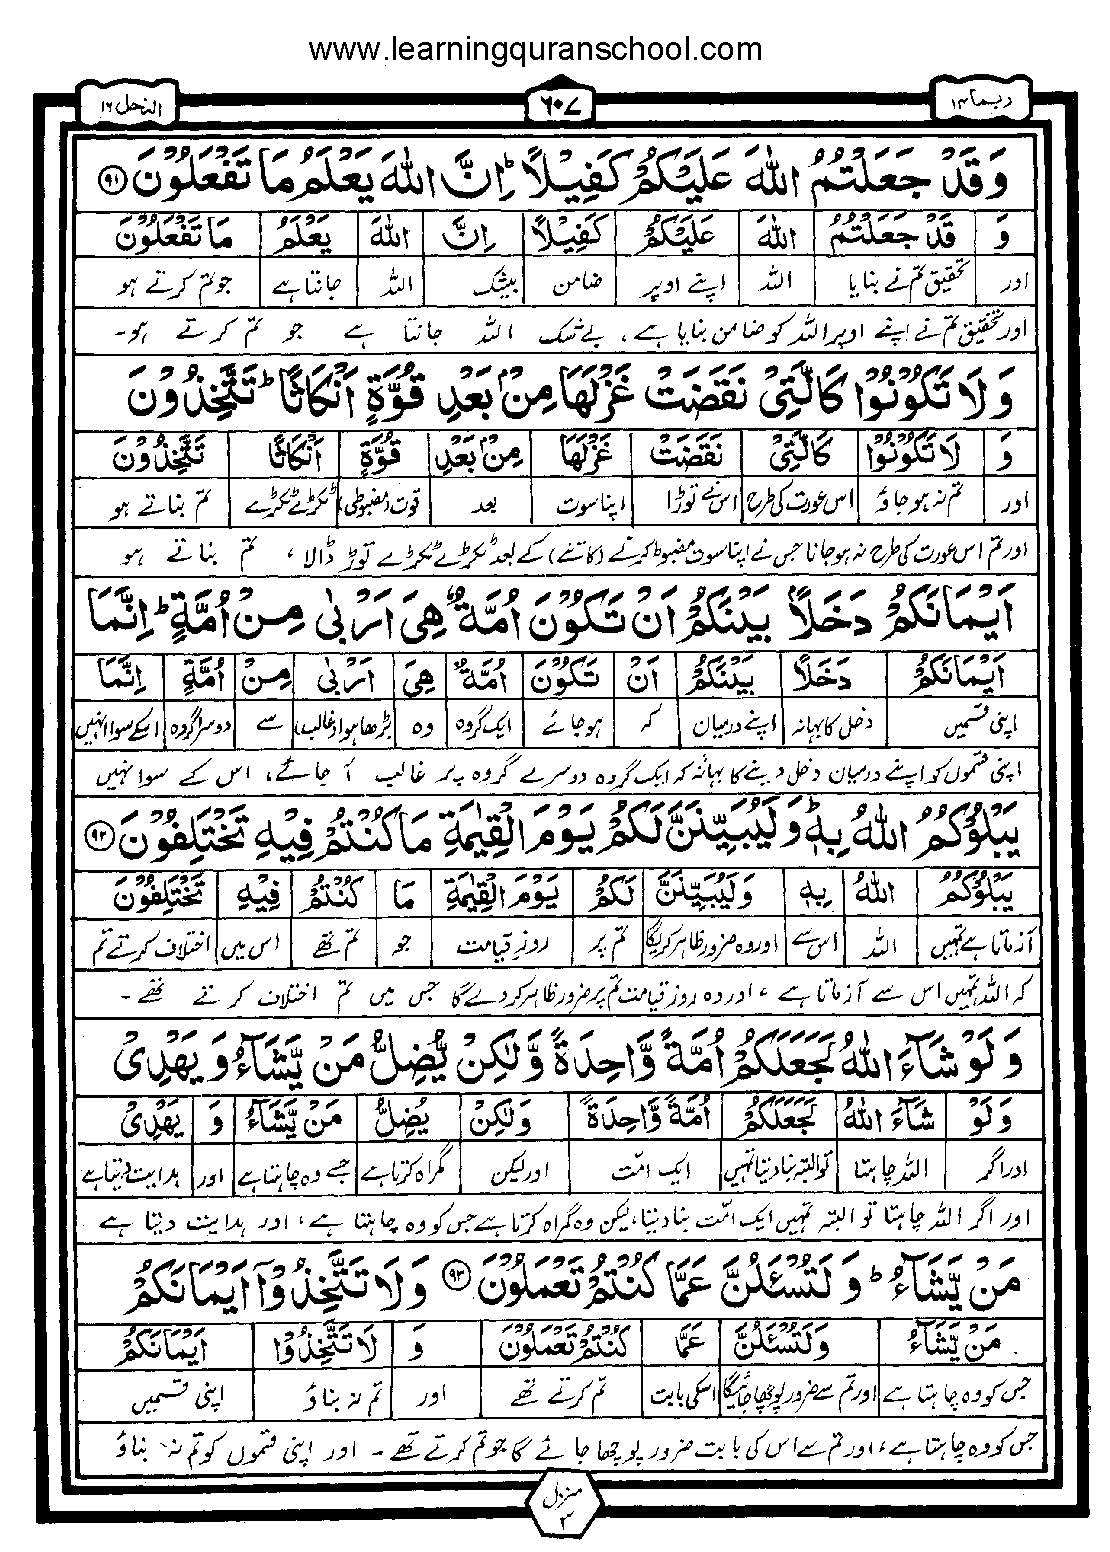 www.learningquranschool.com
ربما ۱۴
۶۰۷
النحل ۱۶
وَقَدْ جَعَلْتُمُ اللّٰهَ عَلَيْكُمْ كَفِيْلًا ؕ اِنَّ اللّٰهَ يَعْلَمُ مَا تَفْعَلُوْنَ ۹۱
وَ قَدْ جَعَلْتُمُ اللّٰهَ عَلَيْكُمْ كَفِيْلًا اِنَّ اللّٰهَ يَعْلَمُ مَا تَفْعَلُوْنَ
اور تحقیق تم نے بنایا اللہ اپنے اوپر ضامن بیشک اللہ جانتا ہے جو تم کرتے ہو
اور تحقیق تم نے اپنے اوپر اللہ کو ضامن بنایا ہے، بے شک اللہ جانتا ہے جو تم کرتے ہو۔
وَلَا تَكُوْنُوْا كَالَّتِيْ نَقَضَتْ غَزْلَهَا مِنْۢ بَعْدِ قُوَّةٍ اَنْكَاثًا ؕ تَتَّخِذُوْنَ
وَ لَا تَكُوْنُوْا كَالَّتِيْ نَقَضَتْ غَزْلَهَا مِنْۢ بَعْدِ قُوَّةٍ اَنْكَاثًا تَتَّخِذُوْنَ
اور تم نہ ہو جاؤ اس عورت کی طرح اس نے توڑا اپنا سوت بعد قوت (مضبوطی) ٹکڑے ٹکڑے تم بناتے ہو
اور تم اس عورت کی طرح نہ ہو جانا جس نے اپنا سوت مضبوط کرنے (کاتنے) کے بعد ٹکڑے ٹکڑے توڑ ڈالا، تم بناتے ہو
اَيْمَانَكُمْ دَخَلًاۢ بَيْنَكُمْ اَنْ تَكُوْنَ اُمَّةٌ هِيَ اَرْبٰى مِنْ اُمَّةٍ ؕ اِنَّمَا
اَيْمَانَكُمْ دَخَلًاۢ بَيْنَكُمْ اَنْ تَكُوْنَ اُمَّةٌ هِيَ اَرْبٰى مِنْ اُمَّةٍ اِنَّمَا
اپنی قسمیں دخل کا بہانہ اپنے درمیان کہ ہو جائے ایک گروہ وہ بڑھا ہوا (غالب) سے دوسرا گروہ اسکے سوا نہیں
اپنی قسموں کو اپنے درمیان دخل دینے کا بہانہ کہ ایک گروہ دوسرے گروہ پر غالب آ جائے، اس کے سوا نہیں
يَبْلُوْكُمُ اللّٰهُ بِهٖ ؕ وَلَيُبَيِّنَنَّ لَكُمْ يَوْمَ الْقِيٰمَةِ مَا كُنْتُمْ فِيْهِ تَخْتَلِفُوْنَ ۹۲
يَبْلُوْكُمُ اللّٰهُ بِهٖ وَلَيُبَيِّنَنَّ لَكُمْ يَوْمَ الْقِيٰمَةِ مَا كُنْتُمْ فِيْهِ تَخْتَلِفُوْنَ
آزماتا ہے تمہیں اللہ اس سے اور وہ ضرور ظاہر کریگا تم پر روزِ قیامت جو تم تھے اس میں اختلاف کرتے تم
کہ اللہ تمہیں اس سے آزماتا ہے، اور وہ روز قیامت تم پر ضرور ظاہر کر دے گا جس میں تم اختلاف کرتے تھے۔
وَلَوْ شَآءَ اللّٰهُ لَجَعَلَكُمْ اُمَّةً وَّاحِدَةً وَّلٰكِنْ يُّضِلُّ مَنْ يَّشَآءُ وَيَهْدِيْ
وَلَوْ شَآءَ اللّٰهُ لَجَعَلَكُمْ اُمَّةً وَّاحِدَةً وَلٰكِنْ يُضِلُّ مَنْ يَّشَآءُ وَ يَهْدِيْ
اور اگر اللہ چاہتا تو البتہ بنا دیتا تمہیں ایک امّت اور لیکن گمراہ کرتا ہے جسے وہ چاہتا ہے اور ہدایت دیتا ہے
اور اگر اللہ چاہتا تو البتہ تمہیں ایک امّت بنا دیتا، لیکن وہ گمراہ کرتا ہے جس کو وہ چاہتا ہے، اور ہدایت دیتا ہے
مَنْ يَّشَآءُ ؕ وَلَتُسْئَلُنَّ عَمَّا كُنْتُمْ تَعْمَلُوْنَ ۹۳ وَلَا تَتَّخِذُوْٓا اَيْمَانَكُمْ
مَنْ يَّشَآءُ وَلَتُسْئَلُنَّ عَمَّا كُنْتُمْ تَعْمَلُوْنَ وَ لَا تَتَّخِذُوْا اَيْمَانَكُمْ
جس کو وہ چاہتا ہے اور تم سے ضرور پوچھا جائیگا اسکی بابت تم کرتے تھے اور تم نہ بناؤ اپنی قسمیں
جس کو وہ چاہتا ہے، اور تم سے اس کی بابت ضرور پوچھا جائے گا جو تم کرتے تھے۔ اور اپنی قسموں کو تم نہ بناؤ
منزل
۳